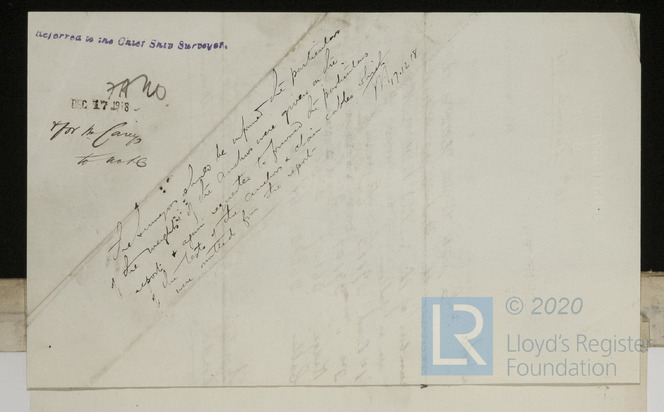 Referred to the Chief Ship Surveyor.
DEC 17 1918
& for Mr Carey
to note
The Surveyor should be informed the particulars
of the weights of the anchors were given on the
report, & again requested to forward the particulars
of the tests of the anchors & chain cables which
were omitted from the report.
17.12.18
LR
© 2020
Lloyd's Register
Foundation